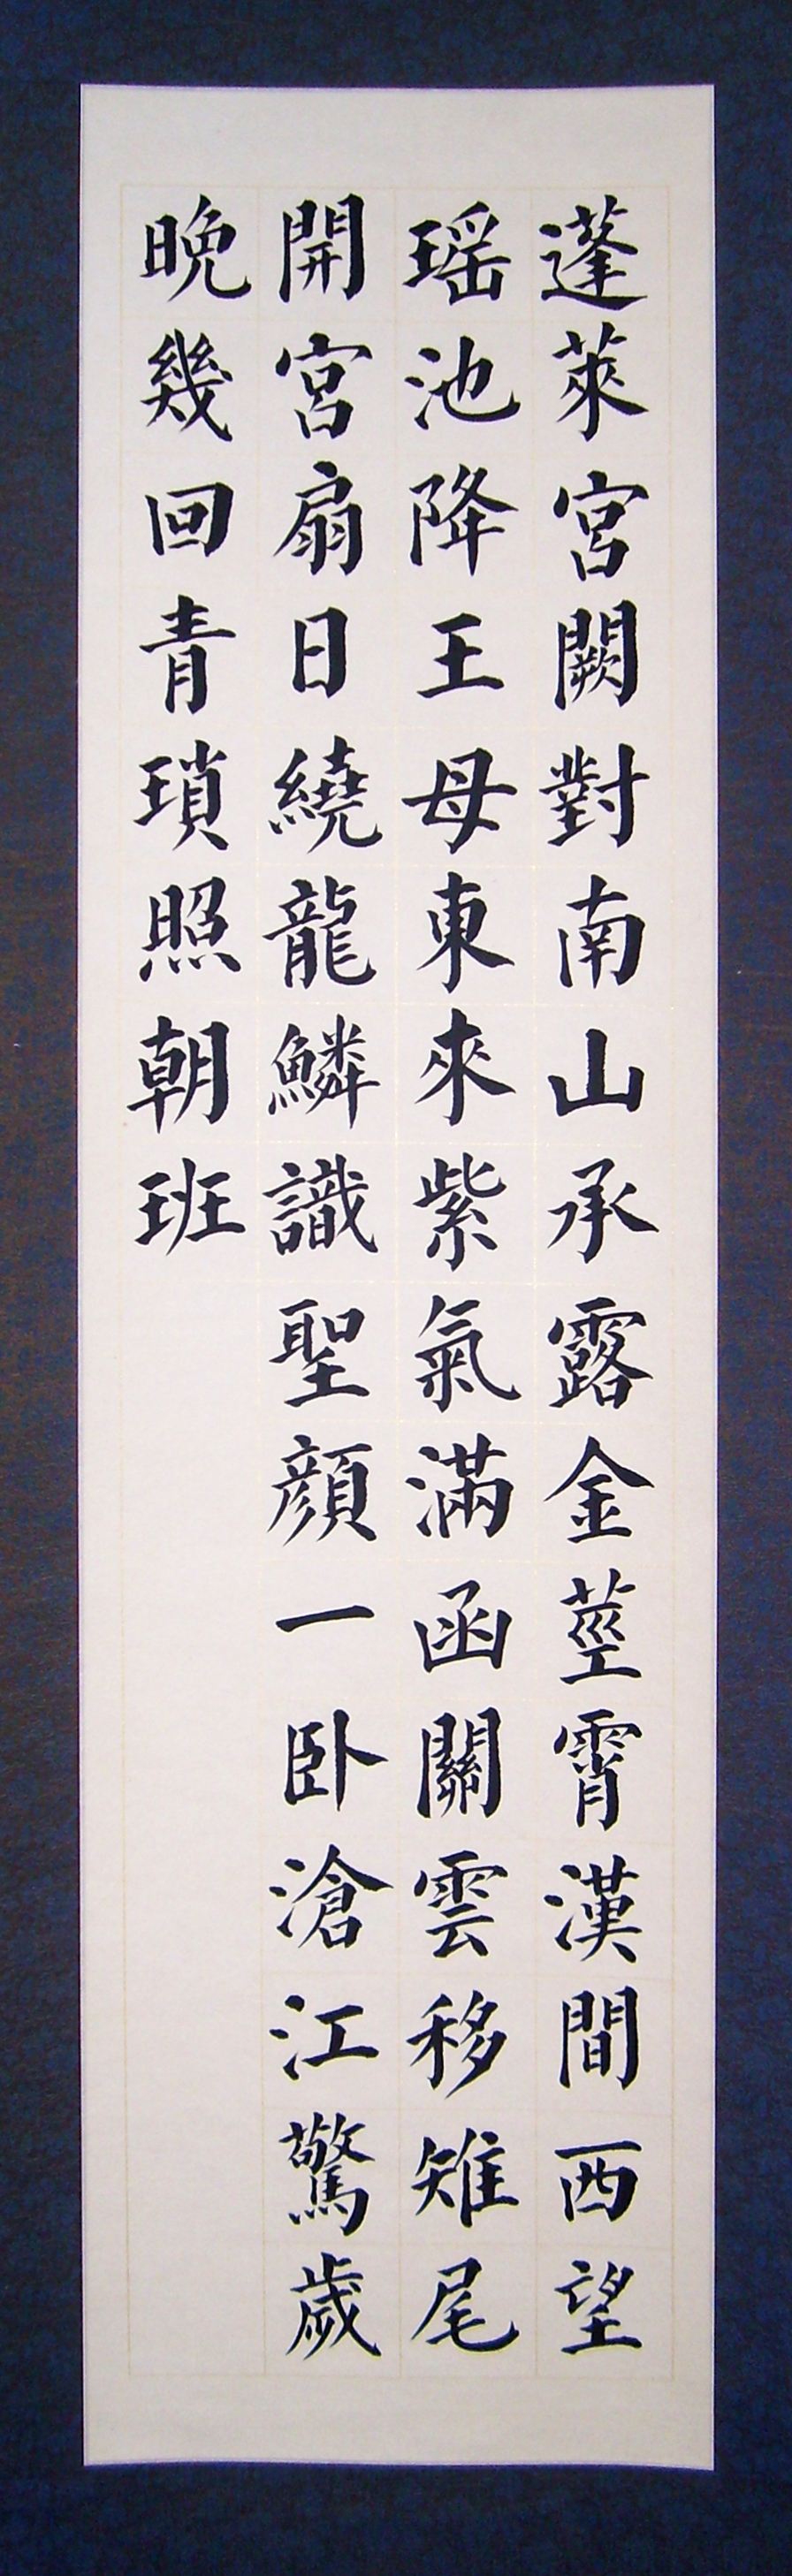 蓬萊宮闕對南山承露金莖霄漢間西望
瑶池降王母東來紫氣滿函關雲移雉尾
開宮扇日繞龍鱗識聖顔一卧滄江驚歲
晚幾回青瑣照朝班